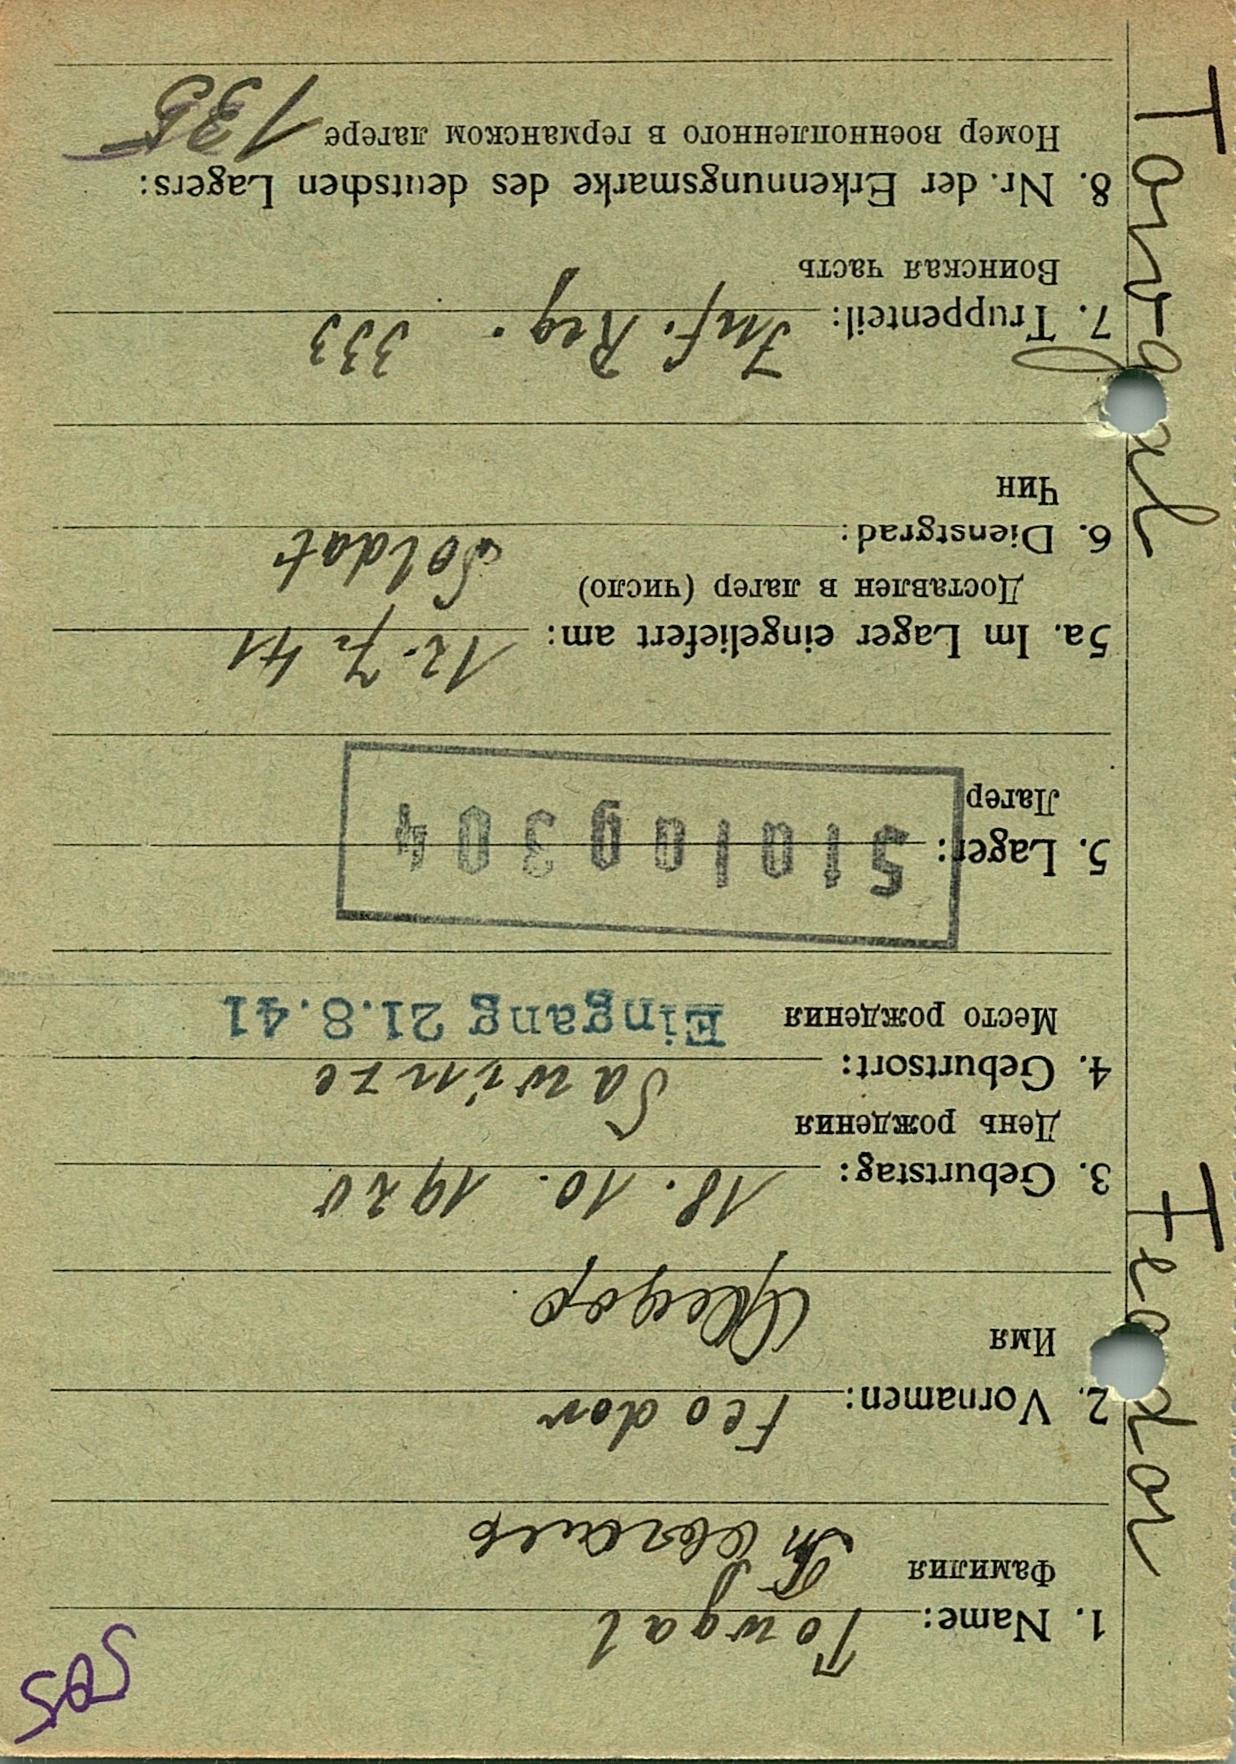 505
1. Name: Towgal
Фамилия Товгаль
2. Vornamen: Feodor
Имя Феодор
3. Geburtstag: 18. 10. 1920
День рождения
4. Geburtsort: Sawinze
Место рождения Eingang 21.8.41
5. Lager: Stalag 304
Лагер
5a. Im Lager eingeliefert am: 12. 7. 41
Доставлен в лагер (число)
6. Dienstgrad: Soldat
Чин
7. Truppenteil: Inf. Reg. 333
Воинская часть
8. Nr. der Erkennungsmarke des deutschen Lagers:
Номер военнопленного в германском лагере 135
Towgal Feodor